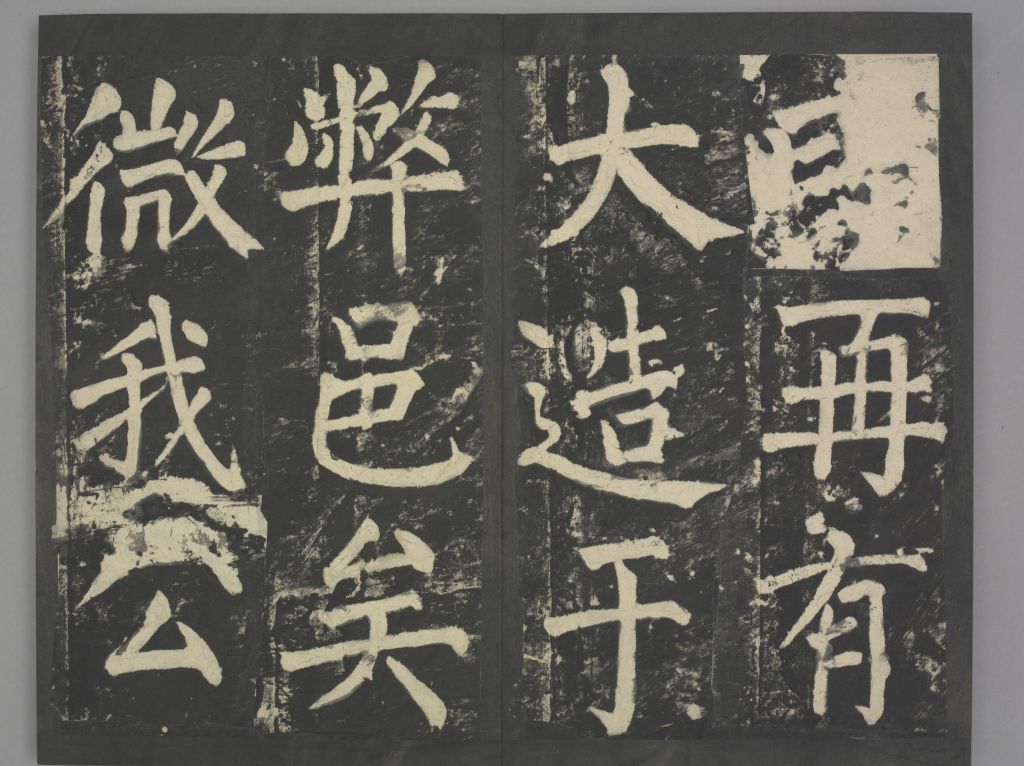 再有
大造于
弊邑矣
微我公